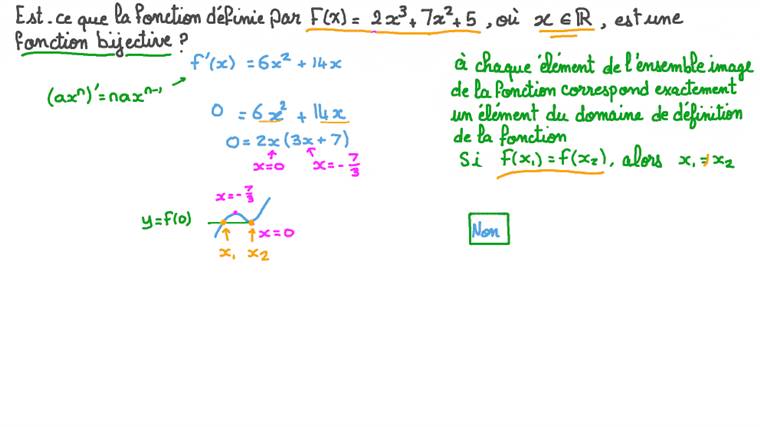 Est-ce que la fonction définie par f(x) = 2x³+7x²+5, où x∈ℝ, est une
fonction bijective ?
f'(x) = 6x² + 14x
(axⁿ)' = naxⁿ⁻¹
0 = 6x² + 14x
0 = 2x(3x+7)
x=0 x=-7/3
x=-7/3
y=f(0)
x=0
x₁ x₂
à chaque élément de l'ensemble image
de la fonction correspond exactement
un élément du domaine de définition
de la fonction
Si f(x₁) = f(x₂), alors x₁ = x₂
Non